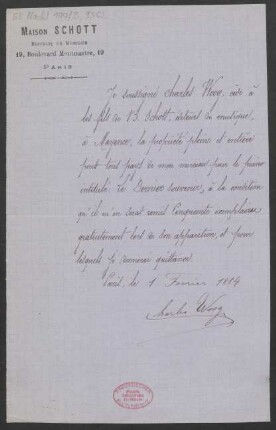 MAISON SCHOTT
ÉDITEURS DE MUSIQUE
19, Boulevard Montmartre, 19
PARIS
Je soussigné Charles Wery, cède à
les fils de B. Schott, éditeurs de musique,
à Mayence, la propriété pleine et entière
pour tout pays de mon morceau pour le piano
intitulé: Le Dernier souvenir, à la condition
qu'il m'en serait remis Cinquante exemplaires
gratuitement lors de son apparition, et pour
lesquels je donnerai quittance.
Paris, le 1 Février 1874
Charles Wery